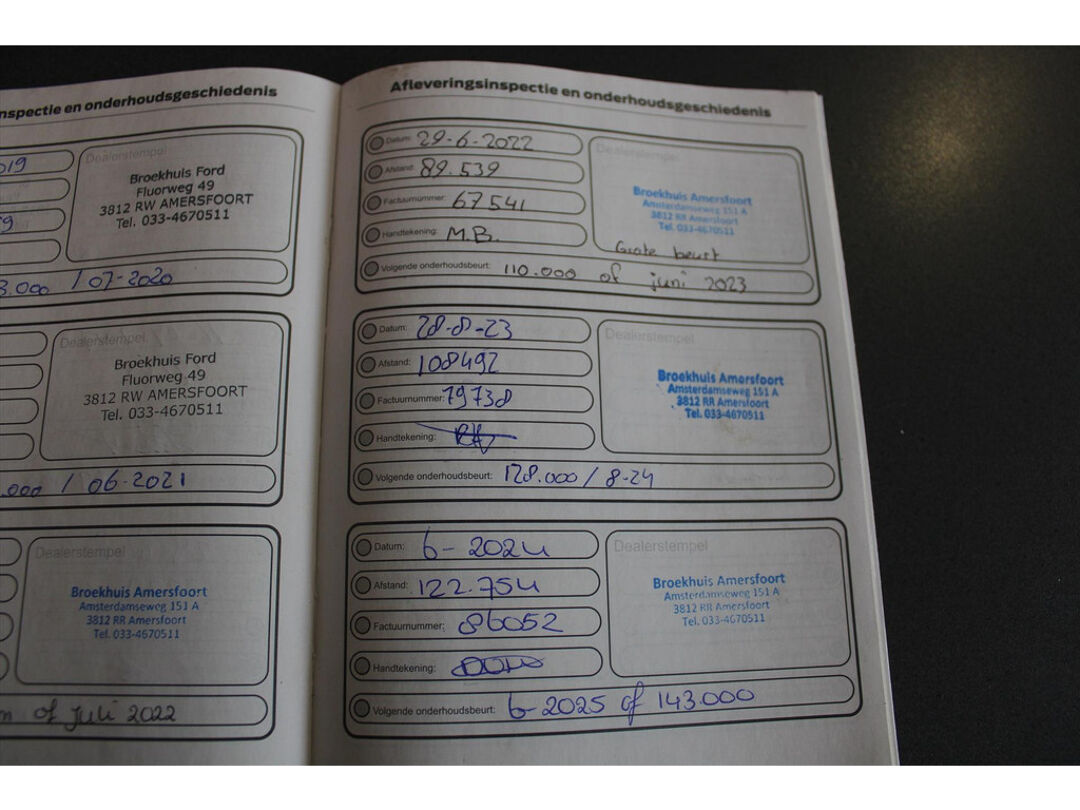 nspectie en onderhoudsgeschiedenis
019
Dealerstempel
Broekhuis Ford
Fluorweg 49
3812 RW AMERSFOORT
Tel. 033-4670511
9
3.000 / 07-2020
Dealerstempel
Broekhuis Ford
Fluorweg 49
3812 RW AMERSFOORT
Tel. 033-4670511
.000 / 06-2021
Dealerstempel
Broekhuis Amersfoort
Amsterdamseweg 151 A
3812 RR Amersfoort
Tel. 033-4670511
m of Juli 2022
Afleveringsinspectie en onderhoudsgeschiedenis
Datum: 29-6-2022
Afstand: 89.539
Factuurnummer: 67541
Handtekening: M.B.
Dealerstempel
Broekhuis Amersfoort
Amsterdamseweg 151 A
3812 RR Amersfoort
Tel. 033-4670511
Grote beurt
Volgende onderhoudsbeurt: 110.000 of juni 2023
Datum: 28-8-23
Afstand: 108492
Factuurnummer: 79738
Handtekening:
Dealerstempel
Broekhuis Amersfoort
Amsterdamseweg 151 A
3812 RR Amersfoort
Tel. 033-4670511
Volgende onderhoudsbeurt: 128.000 / 8-24
Datum: 6-2024
Afstand: 122.754
Factuurnummer: 86052
Handtekening:
Dealerstempel
Broekhuis Amersfoort
Amsterdamseweg 151 A
3812 RR Amersfoort
Tel. 033-4670511
Volgende onderhoudsbeurt: 6-2025 of 143.000